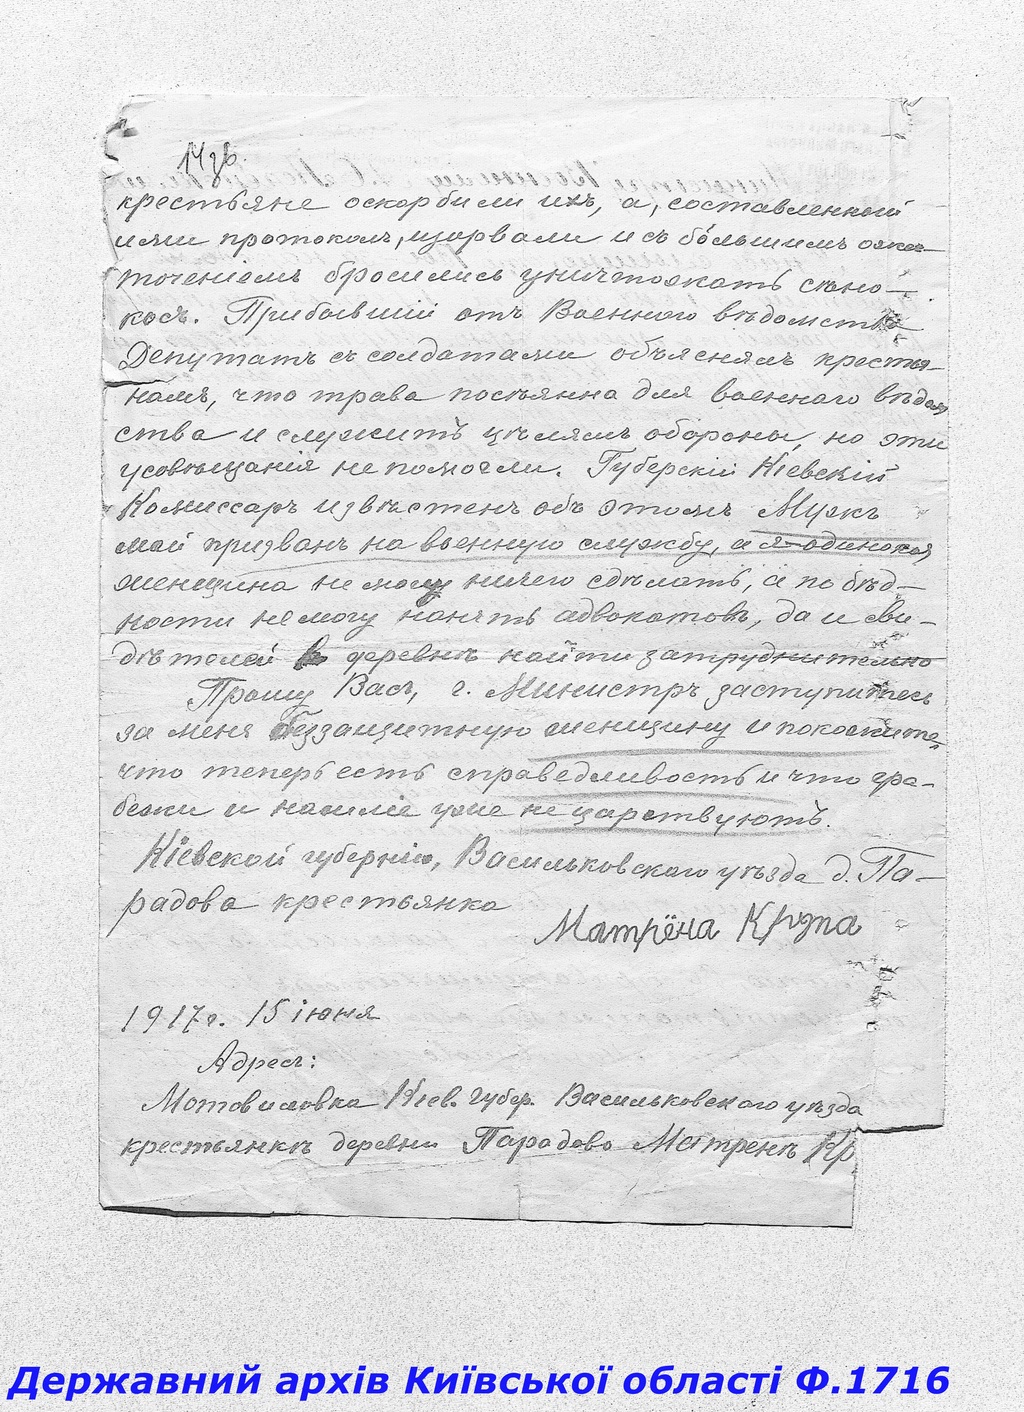 14 зв.
крестьяне оскорбили ихъ, а, составленный
ими протоколъ, изорвали и съ большимъ оже-
точеніемъ бросились уничтожать сѣно-
косъ. Прибывшій отъ Военнаго вѣдомства
Депутатъ съ солдатами объяснялъ крестья-
намъ, что трава посѣяна для военнаго вѣдом
ства и служитъ цѣлямъ обороны, но эти
усовѣщанія не помогли. Губерскій Кіевскій
Комиссаръ извѣстенъ объ этомъ Мужъ
мой призванъ на военную службу, а я одинокая
женщина не могу ничего сдѣлать, а по бѣд-
ности не могу нанять адвокатовъ, да и сви-
дѣтелей въ деревнѣ найти затруднительно
Прошу Васъ, г. Министръ заступитесь
за меня беззащитную женщину и покажите,
что теперь есть справедливость и что гра-
бежи и насиліе уже не царствуютъ.
Кіевской губерніи, Васильковскаго уѣзда д. Па-
радова крестьянка
Матрёна Крупа
1917 г. 15 іюня
Адресъ:
Мотовиловка Кіев. Губер. Васильковскаго уѣзда
крестьянкѣ деревни Парадово Матренѣ Кр
Державний архів Київської області Ф.1716